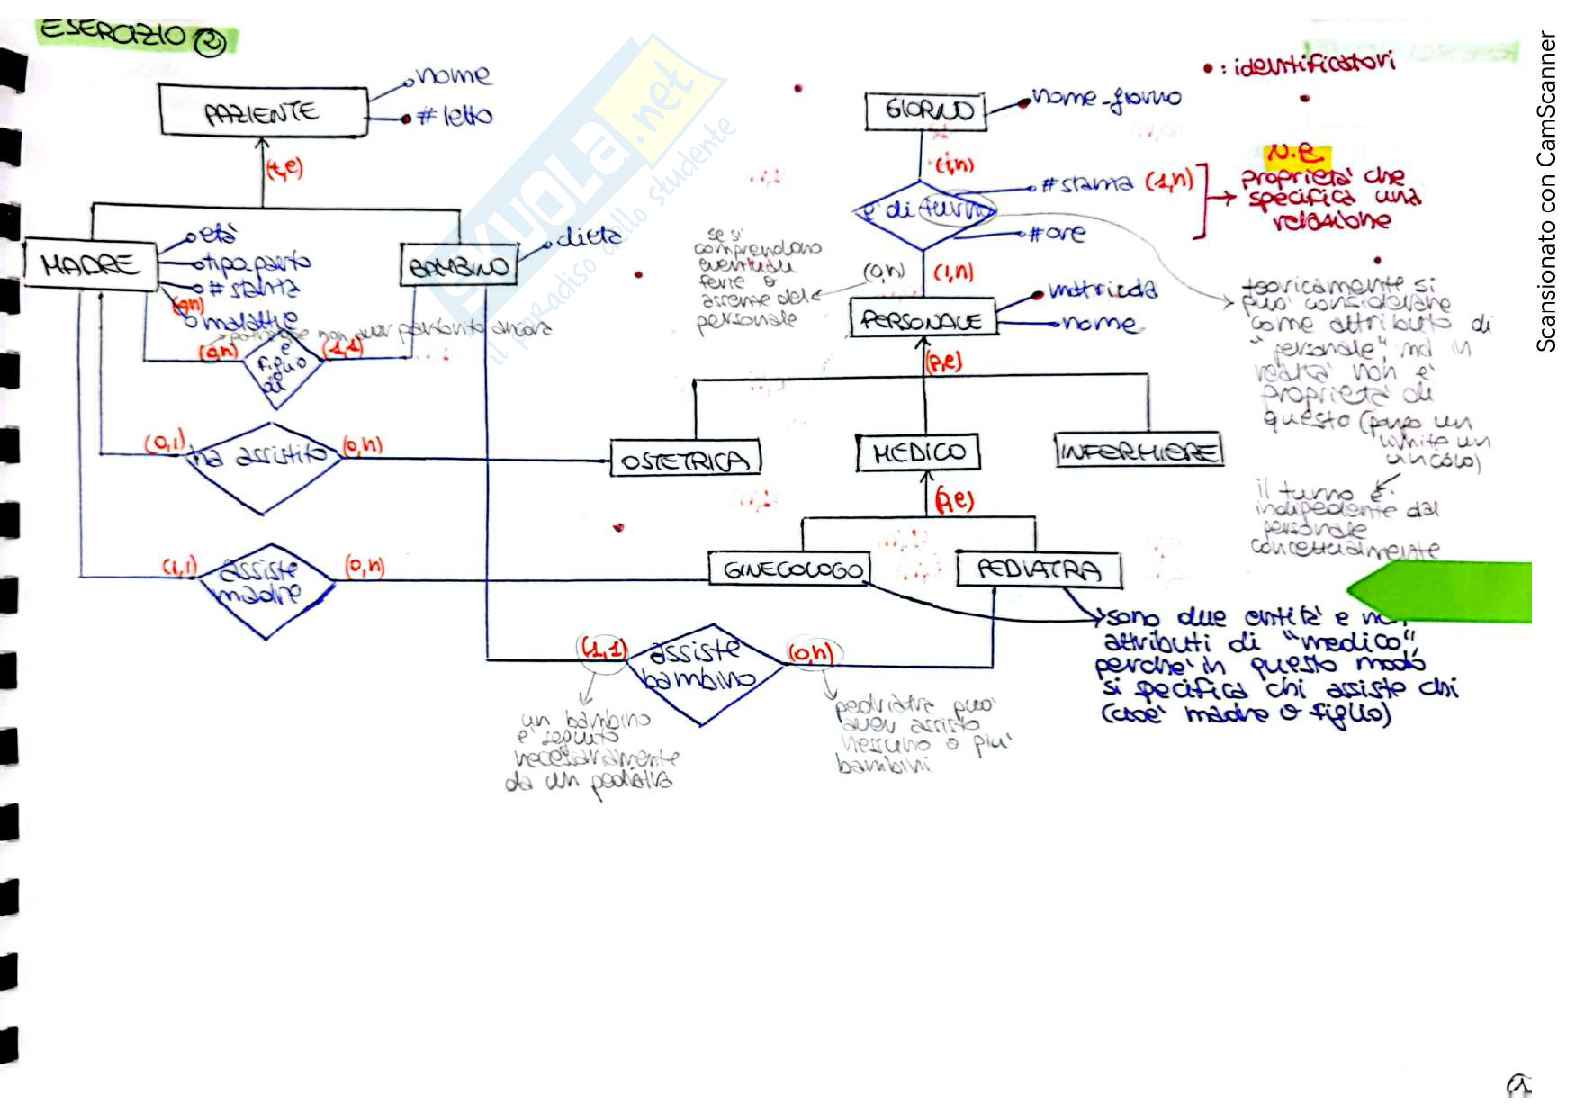 ESERCIZIO 2
PAZIENTE
nome
# letto
(t,e)
MADRE
età
tipo parto
# stanza
(0,n)
malattie
BAMBINO
dieta
potrebbe non aver partorito ancora
(0,n)
è
figlio
di
(1,1)
(0,1)
ha assistito
(0,n)
OSTETRICA
(1,1)
assiste
madre
(0,n)
GINECOLOGO
(1,1)
assiste
bambino
(0,n)
un bambino
è seguito
necessariamente
da un pediatra
pediatra può
aver assistito
nessuno o più
bambini
• : identificatori
GIORNO
nome_giorno
(1,n)
è di turno
# stanza (1,n)
# ore
N.B
proprietà che
specifica una
relazione
se si
comprendono
eventuali
ferie o
assenze del
personale
(0,n)
(1,n)
PERSONALE
matricola
nome
(p,e)
MEDICO
INFERMIERE
(p,e)
PEDIATRA
teoricamente si
può considerare
come attributo di
"personale" ma in
realtà non è
proprietà di
questo
il turno è
indipendente dal
personale
concettualmente
sono due entità e non
attributi di "medico",
perchè in questo modo
si specifica chi assiste chi
(cioè madre o figlio)
Skuola.net
il paradiso dello studente
Scansionato con CamScanner
1